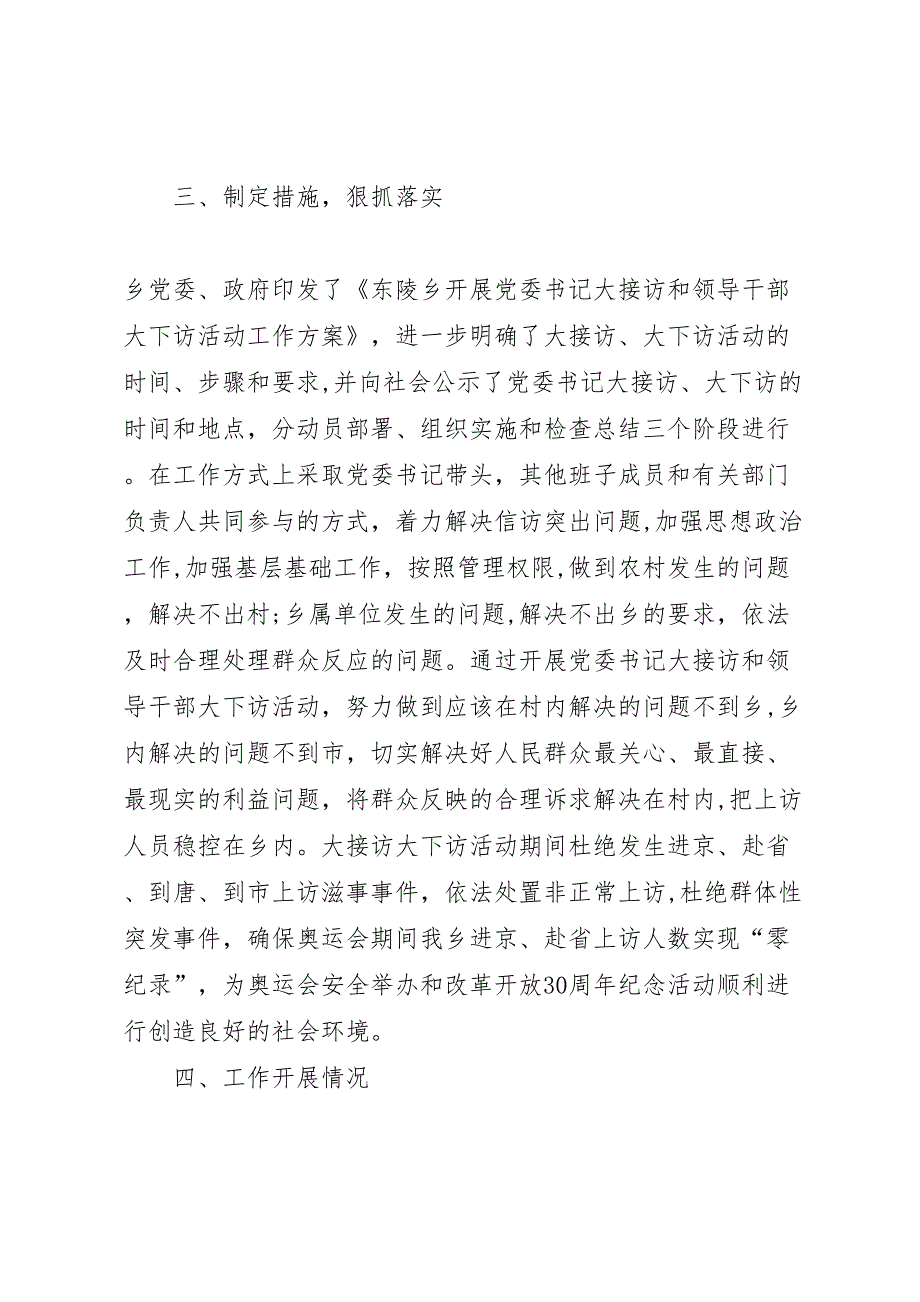 三、制定措施，狠抓落实
乡党委、政府印发了《东陵乡开展党委书记大接访和领导干部
大下访活动工作方案》，进一步明确了大接访、大下访活动的
时间、步骤和要求,并向社会公示了党委书记大接访、大下访的
时间和地点，分动员部署、组织实施和检查总结三个阶段进行
。在工作方式上采取党委书记带头，其他班子成员和有关部门
负责人共同参与的方式，着力解决信访突出问题,加强思想政治
工作,加强基层基础工作，按照管理权限,做到农村发生的问题
，解决不出村;乡属单位发生的问题,解决不出乡的要求，依法
及时合理处理群众反应的问题。通过开展党委书记大接访和领
导干部大下访活动，努力做到应该在村内解决的问题不到乡,乡
内解决的问题不到市，切实解决好人民群众最关心、最直接、
最现实的利益问题，将群众反映的合理诉求解决在村内,把上访
人员稳控在乡内。大接访大下访活动期间杜绝发生进京、赴省
、到唐、到市上访滋事事件，依法处置非正常上访,杜绝群体性
突发事件，确保奥运会期间我乡进京、赴省上访人数实现“零
纪录”，为奥运会安全举办和改革开放30周年纪念活动顺利进
行创造良好的社会环境。
四、工作开展情况